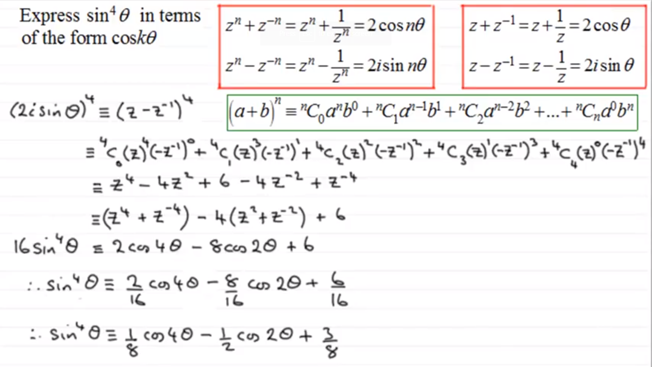 Express sin⁴ θ in terms
of the form coskθ
zⁿ + z⁻ⁿ = zⁿ + 1/zⁿ = 2cos nθ
zⁿ − z⁻ⁿ = zⁿ − 1/zⁿ = 2i sin nθ
z + z⁻¹ = z + 1/z = 2cos θ
z − z⁻¹ = z − 1/z = 2i sin θ
(2i sin θ)⁴ ≡ (z − z⁻¹)⁴
(a+b)ⁿ ≡ ⁿC₀aⁿb⁰ + ⁿC₁aⁿ⁻¹b¹ + ⁿC₂aⁿ⁻²b² + ... + ⁿCₙa⁰bⁿ
≡ ⁴C₀(z)⁴(−z⁻¹)⁰ + ⁴C₁(z)³(−z⁻¹)¹ + ⁴C₂(z)²(−z⁻¹)² + ⁴C₃(z)¹(−z⁻¹)³ + ⁴C₄(z)⁰(−z⁻¹)⁴
≡ z⁴ − 4z² + 6 − 4z⁻² + z⁻⁴
≡ (z⁴ + z⁻⁴) − 4(z² + z⁻²) + 6
16 sin⁴θ ≡ 2 cos 4θ − 8 cos 2θ + 6
∴ sin⁴θ ≡ 2/16 cos 4θ − 8/16 cos 2θ + 6/16
∴ sin⁴θ ≡ 1/8 cos 4θ − 1/2 cos 2θ + 3/8